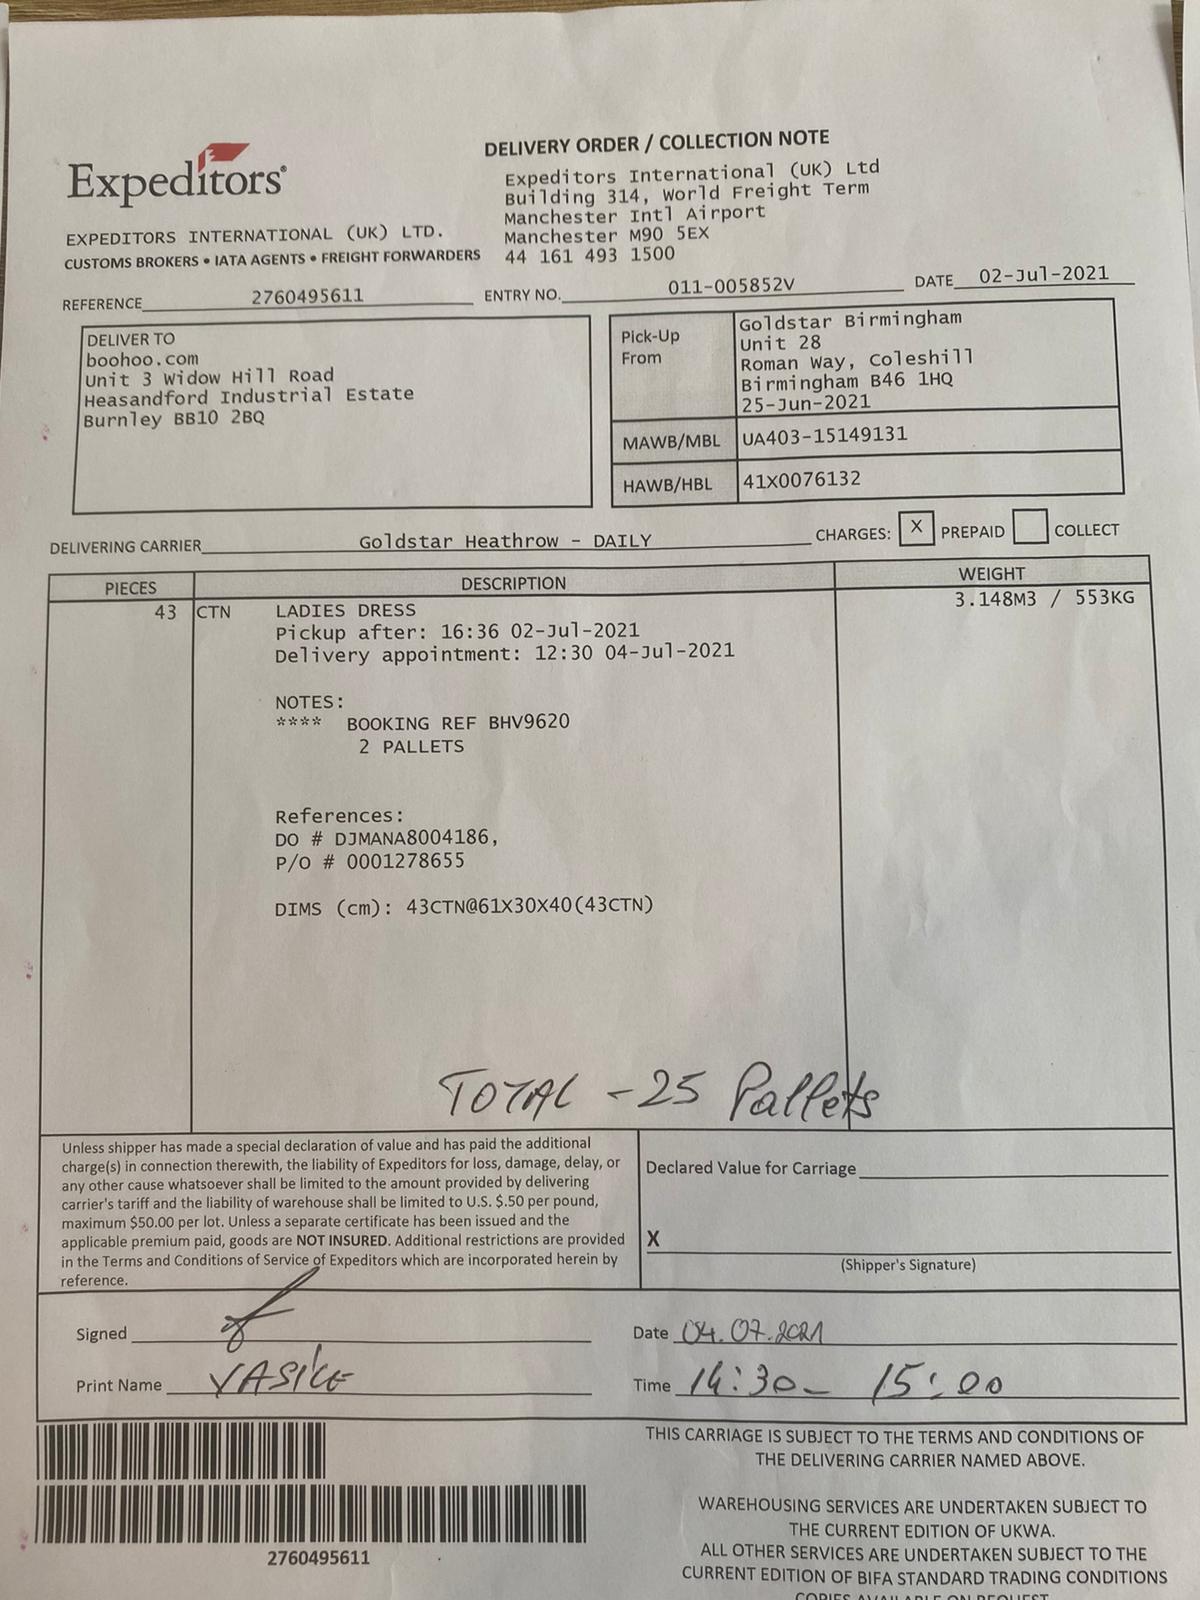 Expeditors®
EXPEDITORS INTERNATIONAL (UK) LTD.
CUSTOMS BROKERS • IATA AGENTS • FREIGHT FORWARDERS
DELIVERY ORDER / COLLECTION NOTE
Expeditors International (UK) Ltd
Building 314, World Freight Term
Manchester Intl Airport
Manchester M90 5EX
44 161 493 1500
REFERENCE 2760495611 ENTRY NO. 011-005852V DATE 02-Jul-2021
DELIVER TO
boohoo.com
Unit 3 Widow Hill Road
Heasandford Industrial Estate
Burnley BB10 2BQ
Pick-Up From
Goldstar Birmingham
Unit 28
Roman Way, Coleshill
Birmingham B46 1HQ
25-Jun-2021
MAWB/MBL UA403-15149131
HAWB/HBL 41X0076132
DELIVERING CARRIER Goldstar Heathrow - DAILY CHARGES: X PREPAID COLLECT
PIECES DESCRIPTION WEIGHT
43 CTN LADIES DRESS 3.148M3 / 553KG
Pickup after: 16:36 02-Jul-2021
Delivery appointment: 12:30 04-Jul-2021
NOTES:
**** BOOKING REF BHV9620
2 PALLETS
References:
DO # DJMANA8004186,
P/O # 0001278655
DIMS (cm): 43CTN@61X30X40(43CTN)
TOTAL - 25 Pallets
Unless shipper has made a special declaration of value and has paid the additional
charge(s) in connection therewith, the liability of Expeditors for loss, damage, delay, or
any other cause whatsoever shall be limited to the amount provided by delivering
carrier's tariff and the liability of warehouse shall be limited to U.S. $.50 per pound,
maximum $50.00 per lot. Unless a separate certificate has been issued and the
applicable premium paid, goods are NOT INSURED. Additional restrictions are provided
in the Terms and Conditions of Service of Expeditors which are incorporated herein by
reference.
Declared Value for Carriage
X
(Shipper's Signature)
Signed
Date 04.07.2021
Print Name VASILE
Time 14:30 - 15:00
2760495611
THIS CARRIAGE IS SUBJECT TO THE TERMS AND CONDITIONS OF
THE DELIVERING CARRIER NAMED ABOVE.
WAREHOUSING SERVICES ARE UNDERTAKEN SUBJECT TO
THE CURRENT EDITION OF UKWA.
ALL OTHER SERVICES ARE UNDERTAKEN SUBJECT TO THE
CURRENT EDITION OF BIFA STANDARD TRADING CONDITIONS
COPIES AVAILABLE ON REQUEST